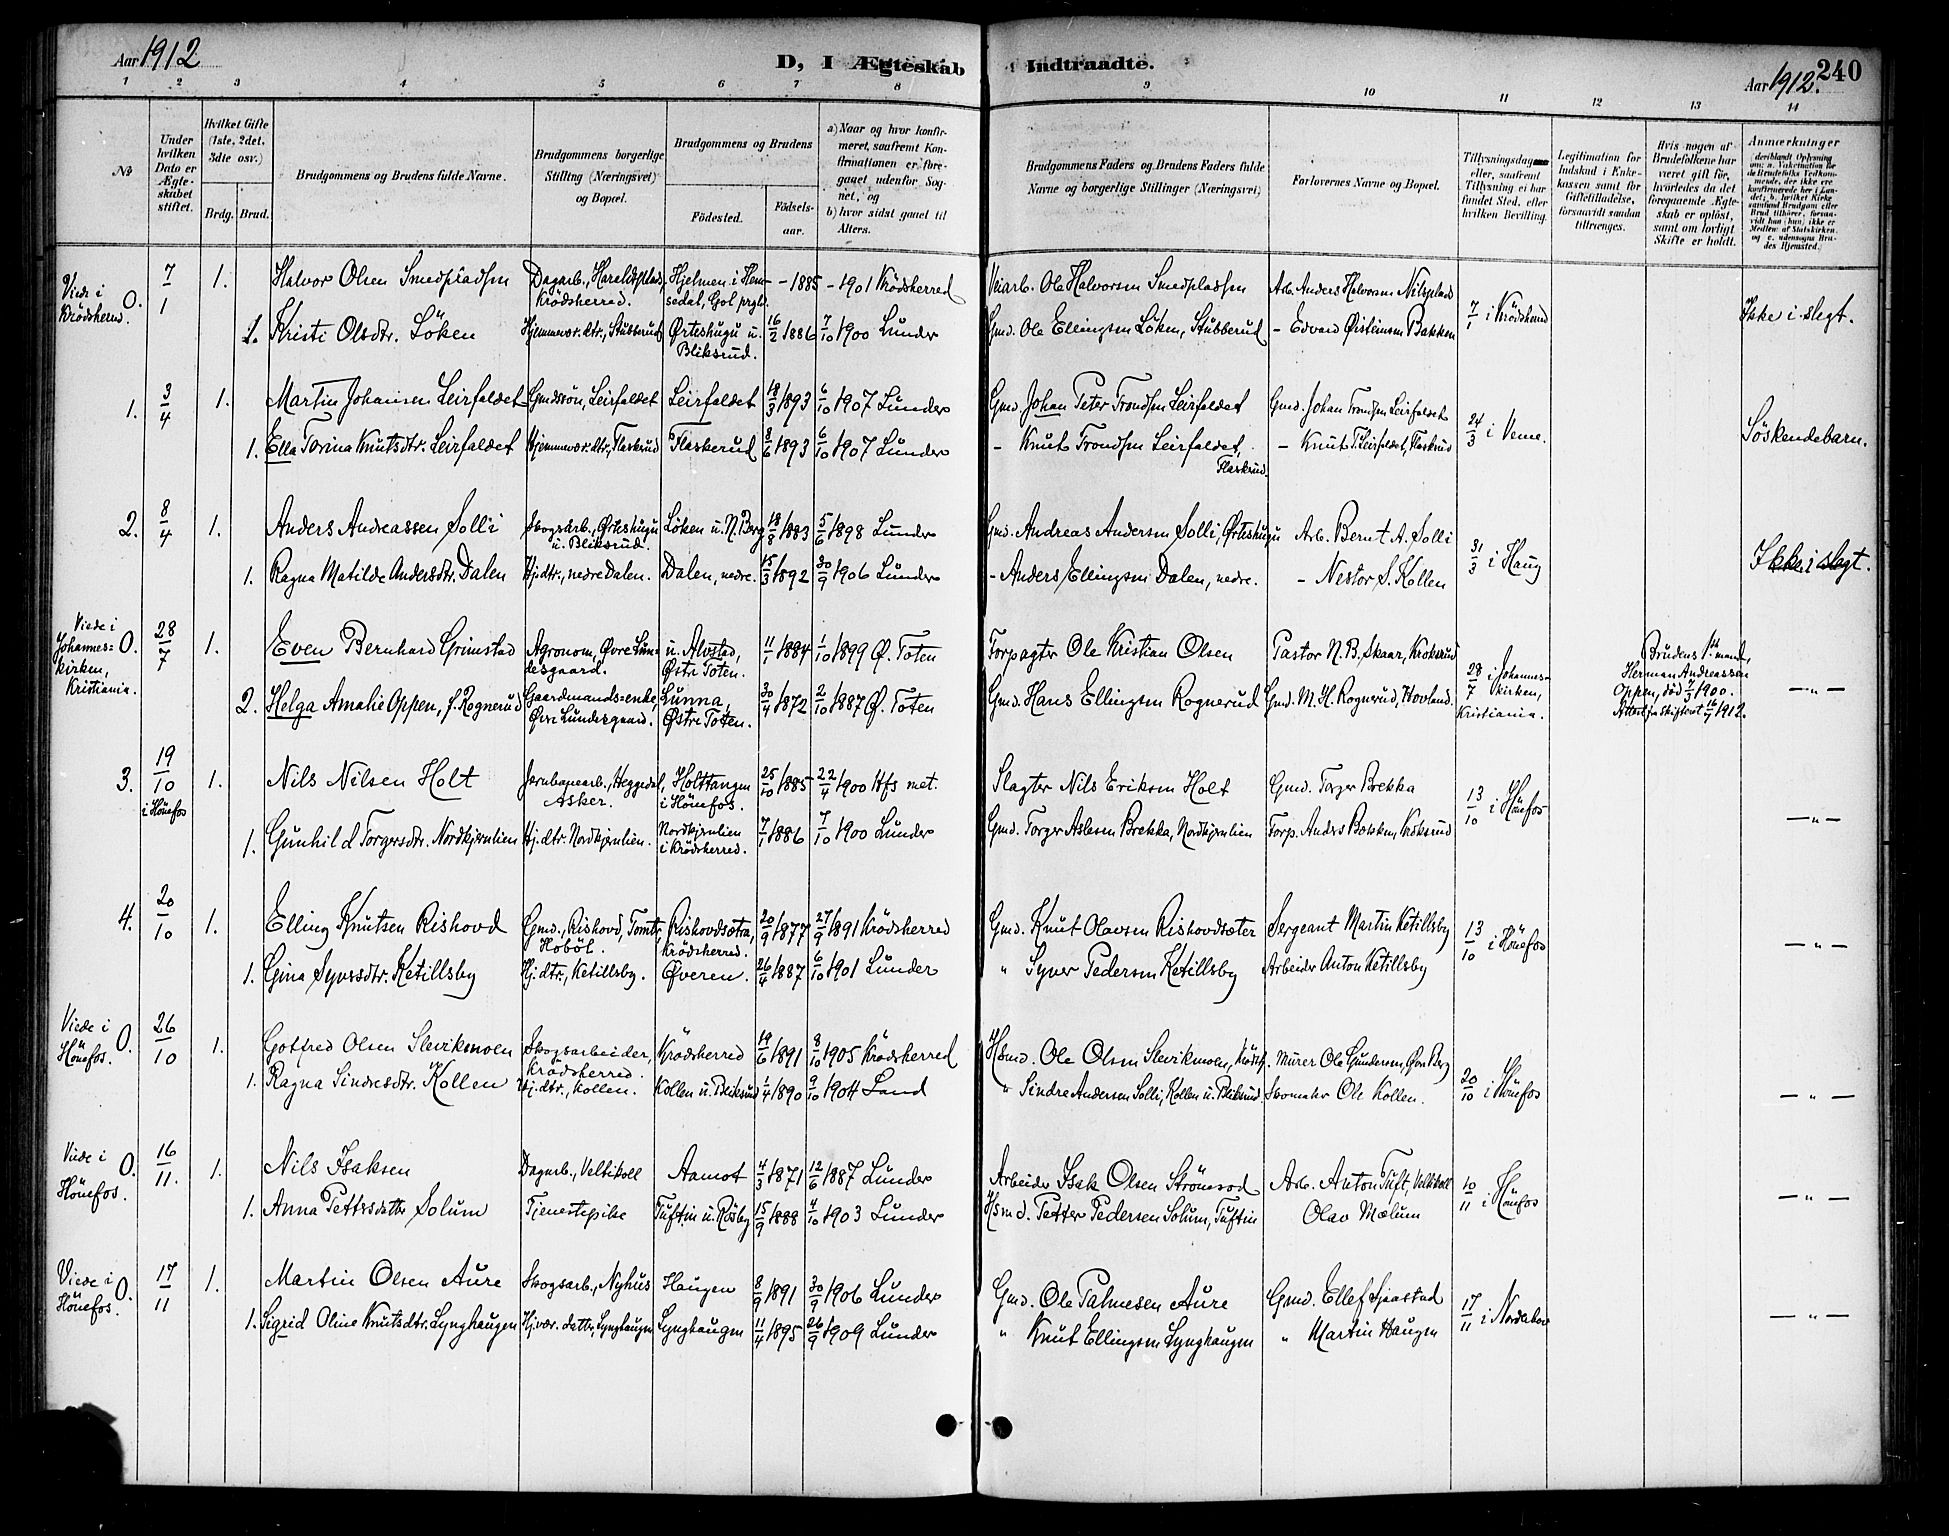 Aar 1912
D, I Ægteskab Indtraadte.
Aar 1912. 240
1 2 3 4 5 6 7 8 9 10 11 12 13 14
No
Under hvilken Dato er Ægteskabet stiftet.
Hvilket Gifte (1ste, 2det, 3dte osv.)
Brdg. Brud.
Brudgommens og Brudens fulde Navne.
Brudgommens borgerlige Stilling (Næringsvei) og Bopæl.
Brudgommens og Brudens
Fødested. Fødselsaar.
a) Naar og hvor konfirmeret, saafremt Konfirmationen er foregaaet udenfor Sognet, og
b) hvor sidst gaaet til Alters.
Brudgommens Faders og Brudens Faders fulde Navne og borgerlige Stillinger (Næringsvei)
Forlovernes Navne og Bopæl.
Tillysningsdagen eller, saafremt Tillysning ei har fundet Sted, efter hvilken Bevilling.
Legitimation for Indskud i Enkekassen samt for Giftetilladelse, forsaavidt saadan tiltrænges.
Hvis nogen af Brudefolkene har været gift før, hvorledes da det foregaaende Ægteskab er opløst, samt om lovligt Skifte er holdt.
Anmerkninger
Viede i Krødsherred O. 7/1 1. Halvor Olsen Smedpladsen Dagarb., Haraldsplads, Krødsherred. Hjelmen i Hemsedal, Gol prgld. - 1885 - 1901 Krødsherred Veiarb. Ole Halvorsen Smedpladsen Arb. Anders Halvorsen Nilsplads 7/1 i Krødsherred Ikke i slegt.
1. Kristi Olsdtr. Löken Hjemmevær. dtr., Stubberud Ørteshugu u. Bliksrud. 16/2 1886 7/10 1900 Lunder Gmd. Ole Ellingsen Löken, Stubberud - Edvard Øistinsen Bakken
1. 3/4 1. Martin Johansen Leirfaldet Gmdssön, Leirfaldet Leirfaldet 18/3 1893 6/10 1907 Lunder Gmd. Johan Peter Trondsen Leirfaldet Gmd. Johan Trondsen Leirfaldet 24/3 i Veme. Söskendebarn.
1. Ella Torina Knutsdtr. Leirfaldet Hjemmevær. dtr., Flaskerud Flaskerud 8/6 1893 6/10 1907 Lunder - Knut Trondsen Leirfaldet, Flaskrud. - Knut T. Leirfaldet, Flaskrud
2. 8/4 1. Anders Andreassen Solli Skogsarb., Ørteshugu u. Bliksrud. Löken u. N. Berg 18/8 1883 5/6 1898 Lunder Gmd. Andreas Andersen Solli, Ørteshugu Arb. Bernt A. Solli 31/3 i Haug Ikke i slegt.
1. Ragna Matilde Andersdtr. Dalen Hj. dtr., nedre Dalen. Dalen, nedre. 15/3 1892 30/9 1906 Lunder - Anders Ellingsen Dalen, nedre. - Nestor S. Kollen
Viede i Johanneskirken, Kristiania. O. 28/7 1. Even Bernhard Grimstad Agronom, Øvre Lundesgaard. u. Alvstad, Østre Toten. 11/1 1884 1/10 1899 Ø. Toten Forpagter Ole Kristian Olsen Pastor N. B. Skaar, Kroksrud 28/7 i Johanneskirken, Kristiania. Brudens 1ste mand, Herman Andreassen Oppen, död 7/3 1900. Attest fra skifteret 16/7 1912. - " -
2. Helga Amalie Oppen, f. Rognerud Gaardmandsenke, Øvre Lundesgaard. Lunna, Østre Toten. 30/4 1872 2/10 1887 Ø. Toten Gmd. Hans Ellingsen Rognerud Gmd. M. H. Rognerud, Hovland.
3. 19/10 i Hönefos 1. Nils Nilsen Holt Jernbanearb., Heggedal, Asker. Holttangen i Hönefos. 25/10 1885 22/4 1900 Hfs met. Slagter Nils Eriksen Holt Gmd. Torger Brekka 13/10 i Hönefos - " -
1. Gunhild Torgersdtr. Nordkjernlien Hj. dtr. Nordkjernlien. Nordkjernlien i Krödsherred. 7/1 1886 7/10 1900 Lunder Gmd. Torger Aslesen Brekka, Nordkjernlien Forp. Anders Kroksrud
4. 20/10 1. Elling Knutsen Rishovd Gmd., Rishovd, Tomter, Hobøl. Rishovdsætra, Krødsherred. 20/9 1877 27/9 1891 Krødsherred Gmd. Knut Olavsen Rishovdsæter Sergeant Martin Ketillsby 13/10 i Hönefos - " -
1. Gina Syversdtr. Ketillsby Hj. dtr., Ketillsby. Øveren. 26/4 1887 6/10 1901 Lunder " Syver Pedersen Ketillsby Arbeider Anton Ketillsby
Viede i Hönefos. O. 26/10 1. Gotfred Olsen Slevikmoen Skogsarbeider, Krødsherred. Krødsherred 19/6 1891 8/10 1905 Krødsherred Hsmd. Ole Olsen Slevikmoen, Murer Ole Gundersen, Berg 20/10 i Hönefos - " -
1. Ragna Sindresdtr. Kollen Hj. dtr., Kollen. Kollen u. Bliksrud 1/4 1890 9/10 1904 Land " Sindre Andersen Solli, Kollen u. Bliksrud. Skomaker Ole Kollen.
Viede i Hönefos. O. 16/11. 1. Nils Isaksen Dagarb., Veltikoll Aamot 4/3 1871 12/6 1887 Lunder Arbeider Isak Olsen Strömsod Arb. Anton Tuft, Veltikoll 10/11 i Hönefos - " -
1. Anna Pettersdatter Solum Tjenestepike Tuftin u. Rösby 15/9 1888 4/10 1903 Lunder Hsmd. Petter Pedersen Solum, Tuftin Olav Mælum
Viede i Hönefos. O. 17/11 1. Martin Olsen Aure Skogsarb., Nyhus Haugen 8/9 1891 30/9 1906 Lunder Gmd. Ole Palmesen Aure Gmd. Ellef Sjaastad 17/11 i Norderhov - " -
1. Sigrid Oline Knutsdtr. Lynghaugen Hj.vær. datter, Lynghaugen Lynghaugen 11/4 1895 26/9 1909 Lunder " Knut Ellingsen Lynghaugen " Martin Haugen